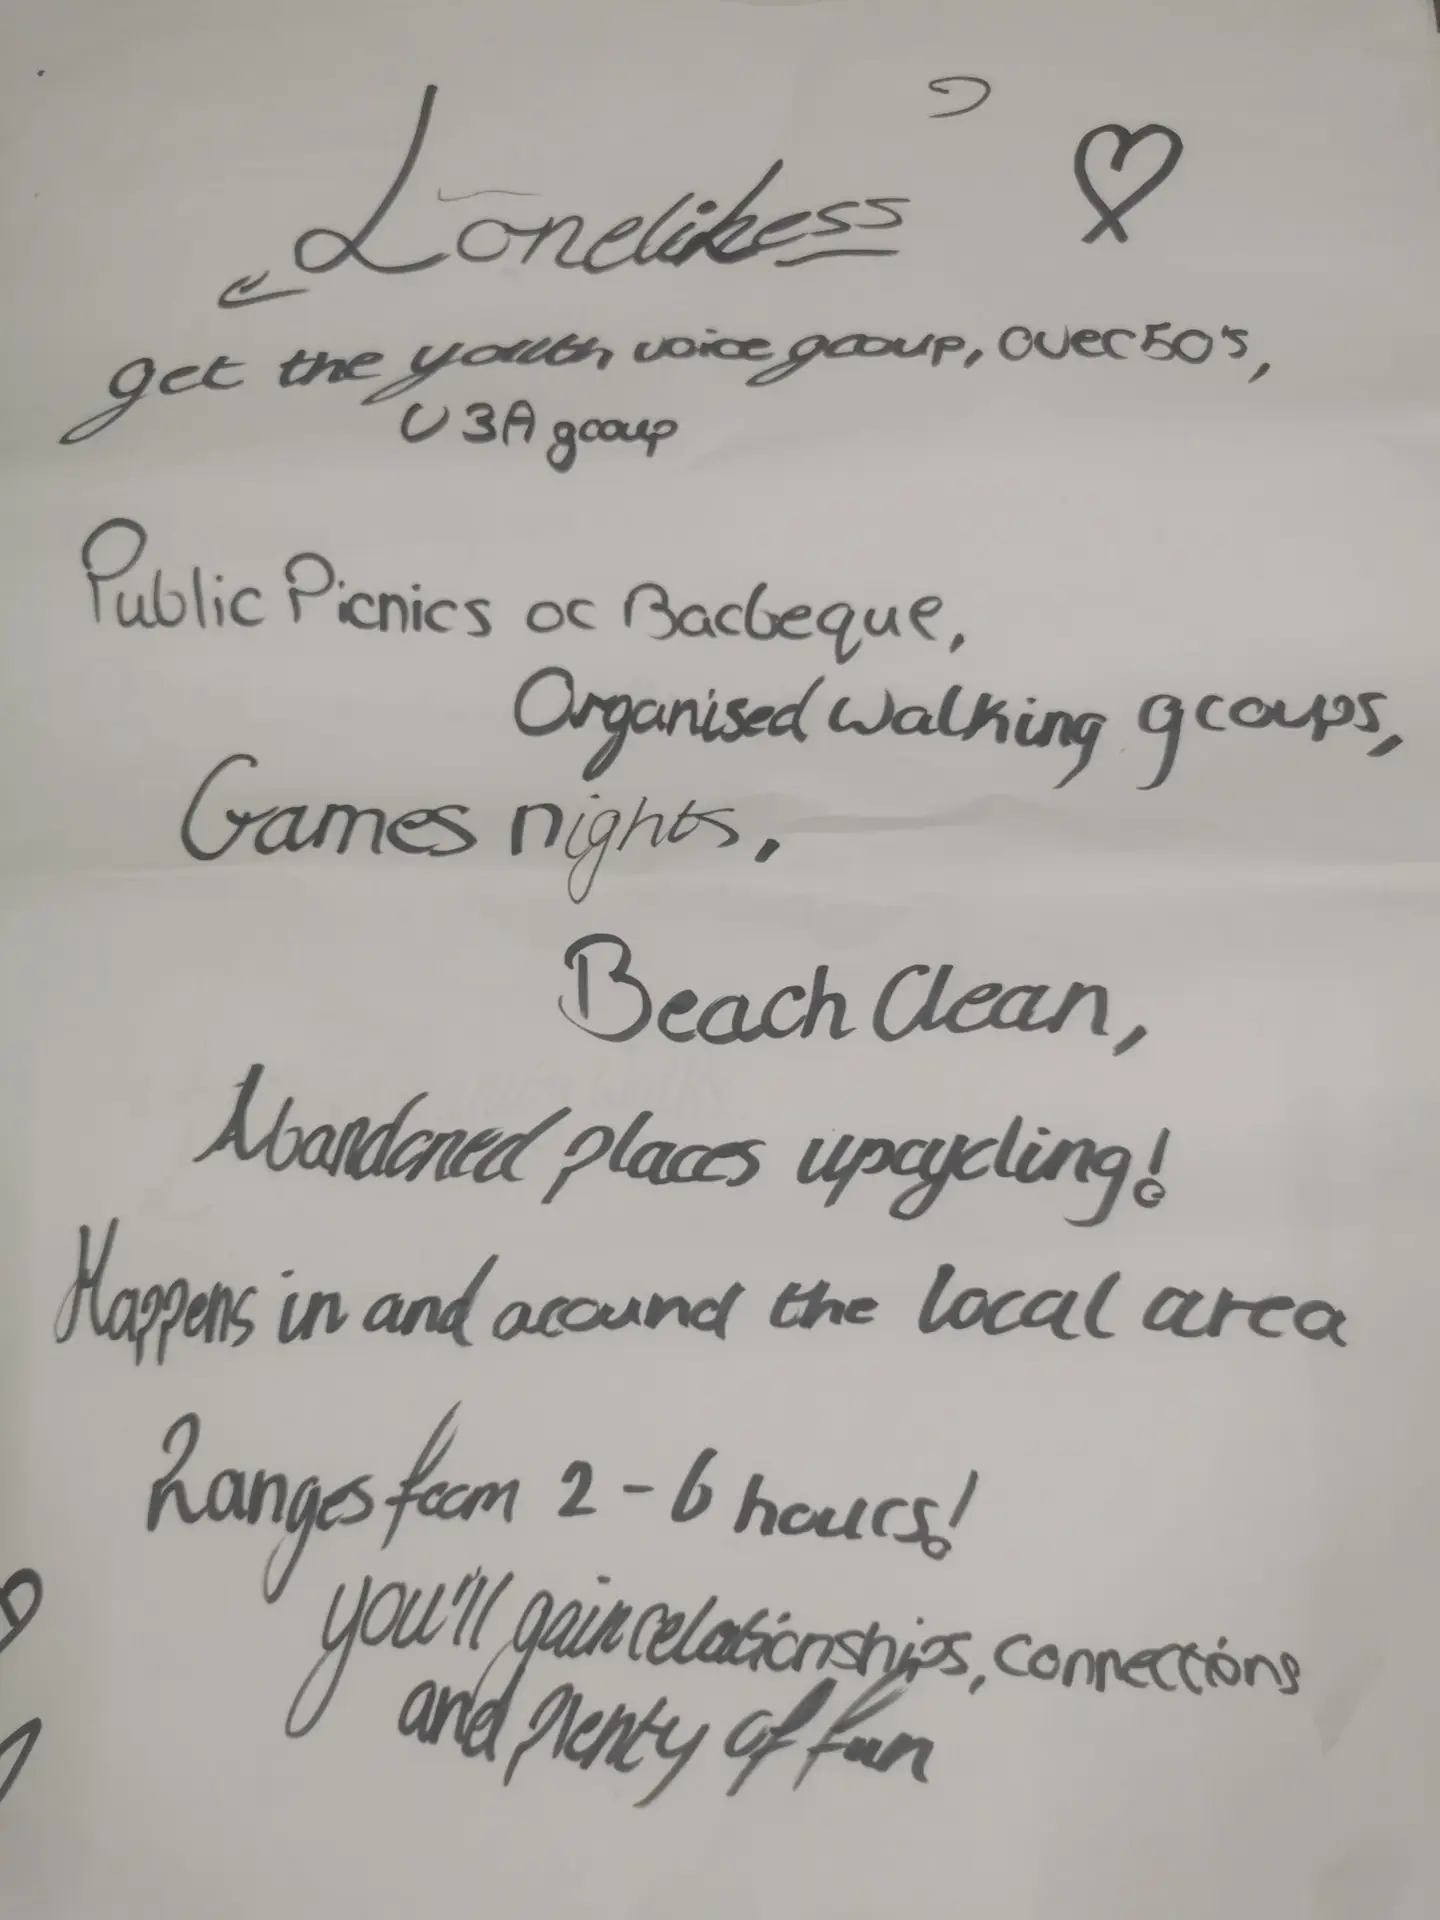 Loneliness
get the youth voice group, over 50's,
U3A group
Public Picnics or Barbeque,
Organised walking groups,
Games nights,
Beach Clean,
Abandoned places upcycling!
Happens in and around the local area
Ranges from 2-6 hours!
you'll gain relationships, connections
and plenty of fun